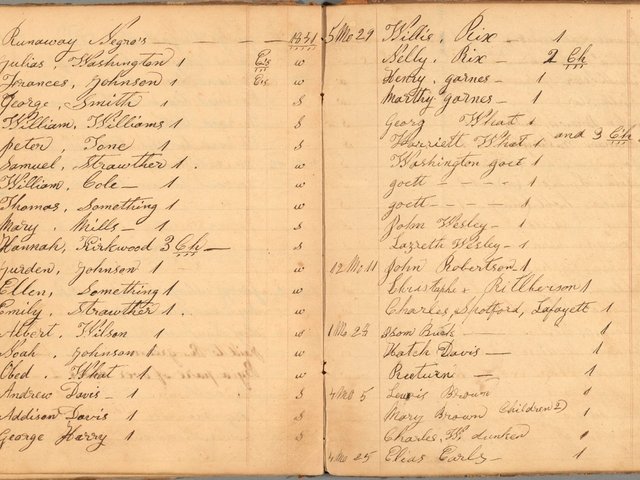 Runaway Negro's 1831
Julias Washington 1 w
Frances, Johnson 1 w
George, Smith 1 s
William, Williams 1 s
Peter, Tone 1 s
Samuel, Strawther 1 . w
William, Cole - 1 w
Thomas, Something 1 w
Mary, Mills - 1 s
Hannah, Kirkwood 3 Ch - s
Jurden, Johnson 1 w
Ellen, Something 1 w
Emily, Strawther 1 . w
Albert, Wilson w
Noah, Johnson 1 w
Obed, What 1 w
Andrew Davis - 1 s
Addison Davis 1 s
George Harry 1 s
5 Mo 29 Willis, Rix - 1
Nelly, Rix - 2 Ch
Henry, garnes - 1
Marthy garnes - 1
Georg What 1
Harriett What 1 and 3 Ch
Washington goet 1
goett - - - - 1
goett - - - - 1
John Wesley - 1
Lazreth Wesley - 1
12 Mo 11 John Robertson - 1
1
Charles, Spotford, Lafayett 1
1 Mo 23 Isom Buck - 1
Hatch Davis - 1
Ruturn - 1
4 Mo 5 Lewis Brown 1
Mary Brown Children 2) 1
Charles, W. dunken 1
4 Mo 25 Elias Early - 1